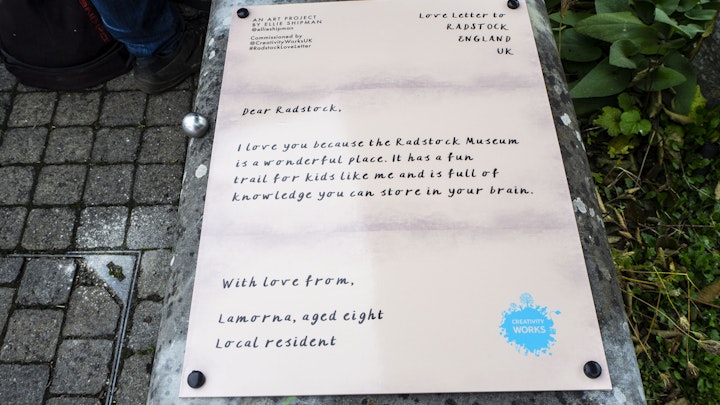 AN ART PROJECT
BY ELLIE SHIPMAN
@ellieshipman
Commissioned by
@CreativityWorksUK
#RadstockLoveLetter
Love Letter to
RADSTOCK
ENGLAND
UK
Dear Radstock,
I love you because the Radstock Museum
is a wonderful place. It has a fun
trail for kids like me and is full of
knowledge you can store in your brain.
With love from,
Lamorna, aged eight
Local resident
CREATIVITY
WORKS